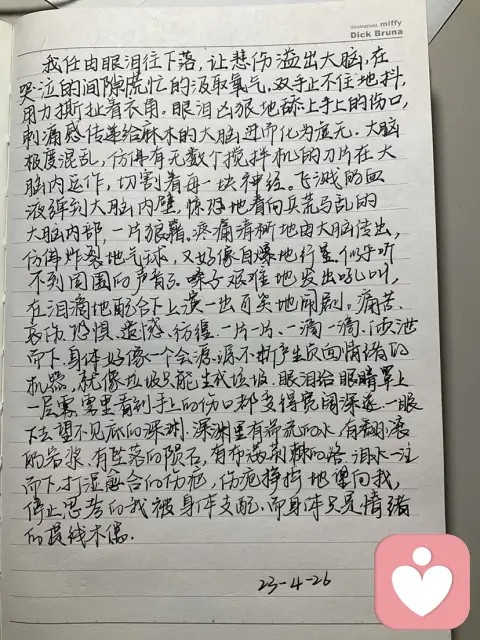 illustrations miffy
Dick Bruna
我任由眼泪往下落，让悲伤溢出大脑，在
哭泣的间隙慌忙的汲取氧气，双手止不住地抖，
用力撕扯着衣角。眼泪凶狠地舔上手上的伤口，
刺痛感传递给麻木的大脑进而化为虚无。大脑
极度混乱，仿佛有无数个搅拌机的刀片在大
脑内运作，切割着每一块神经。飞溅的血
液绊到大脑内壁，惊恐地看向兵荒马乱的
大脑内部，一片狼藉。疼痛清晰地由大脑传出，
仿佛炸裂地气球，又好像自爆地行星，似乎听
不到周围的声音了。嗓子艰难地发出吼叫，
在泪滴地配合下上演一出可笑地闹剧。痛苦、
哀伤、恐惧、遗憾、彷徨，一片一片、一滴一滴、倾泄
而下，身体好像一个会源源不断产生负面情绪的
机器，就像垃圾只能生成垃圾。眼泪给眼睛罩上
一层雾，雾里看到手上的伤口都变得宽阔深邃，一眼
下去望不见底的深渊。深渊里有湍流的水，有翻滚
的岩浆，有坠落的陨石，有布满荆棘的路，泪水一注
而下，打湿愈合的伤疤，伤疤挣扎地望向我，
停止思考的我被身体支配，而身体只是情绪
的提线木偶。
23-4-26